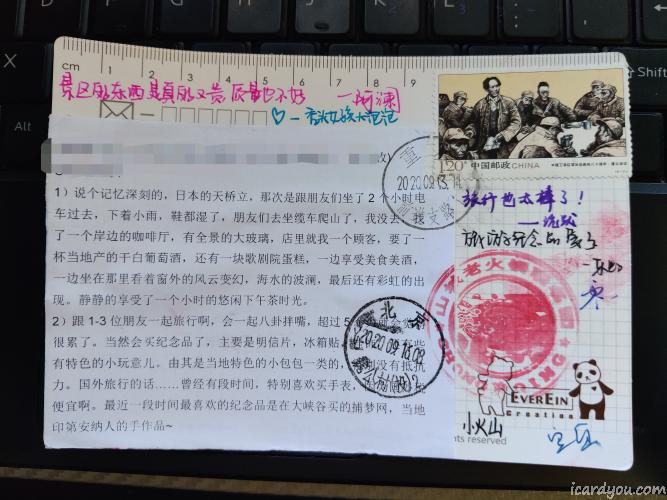 cm 1 2 3 4 5 6 7 8 9
景区的东西是真的又贵质量也不好
1.20元 中国邮政 CHINA
2020.09.13.
旅行也太棒了！
改)
1）说个记忆深刻的，日本的天桥立，那次是跟朋友们坐了 2 个小时电
车过去，下着小雨，鞋都湿了，朋友们去坐缆车爬山了，我没去，找
了一个岸边的咖啡厅，有全景的大玻璃，店里就我一个顾客，要了一
杯当地产的干白葡萄酒，还有一块歌剧院蛋糕，一边享受美食美酒，
一边坐在那里看着窗外的风云变幻，海水的波澜，最后还有彩虹的出
现。静静的享受了一个小时的悠闲下午茶时光。
2）跟 1-3 位朋友一起旅行啊，会一起八卦拌嘴，超过 5
很累了。当然会买纪念品了，主要是明信片，冰箱贴
有特色的小玩意儿。由其是当地特色的小包包一类的，
力。国外旅行的话……曾经有段时间，特别喜欢买手表，
便宜啊。最近一段时间最喜欢的纪念品是在大峡谷买的捕梦网，当地
印第安纳人的手作品~
北京
2020.09.16.08
山城老火锅
CHONGQING
EVEREIN
Creation
小火山
rights reserved
Alt
icardyou.com